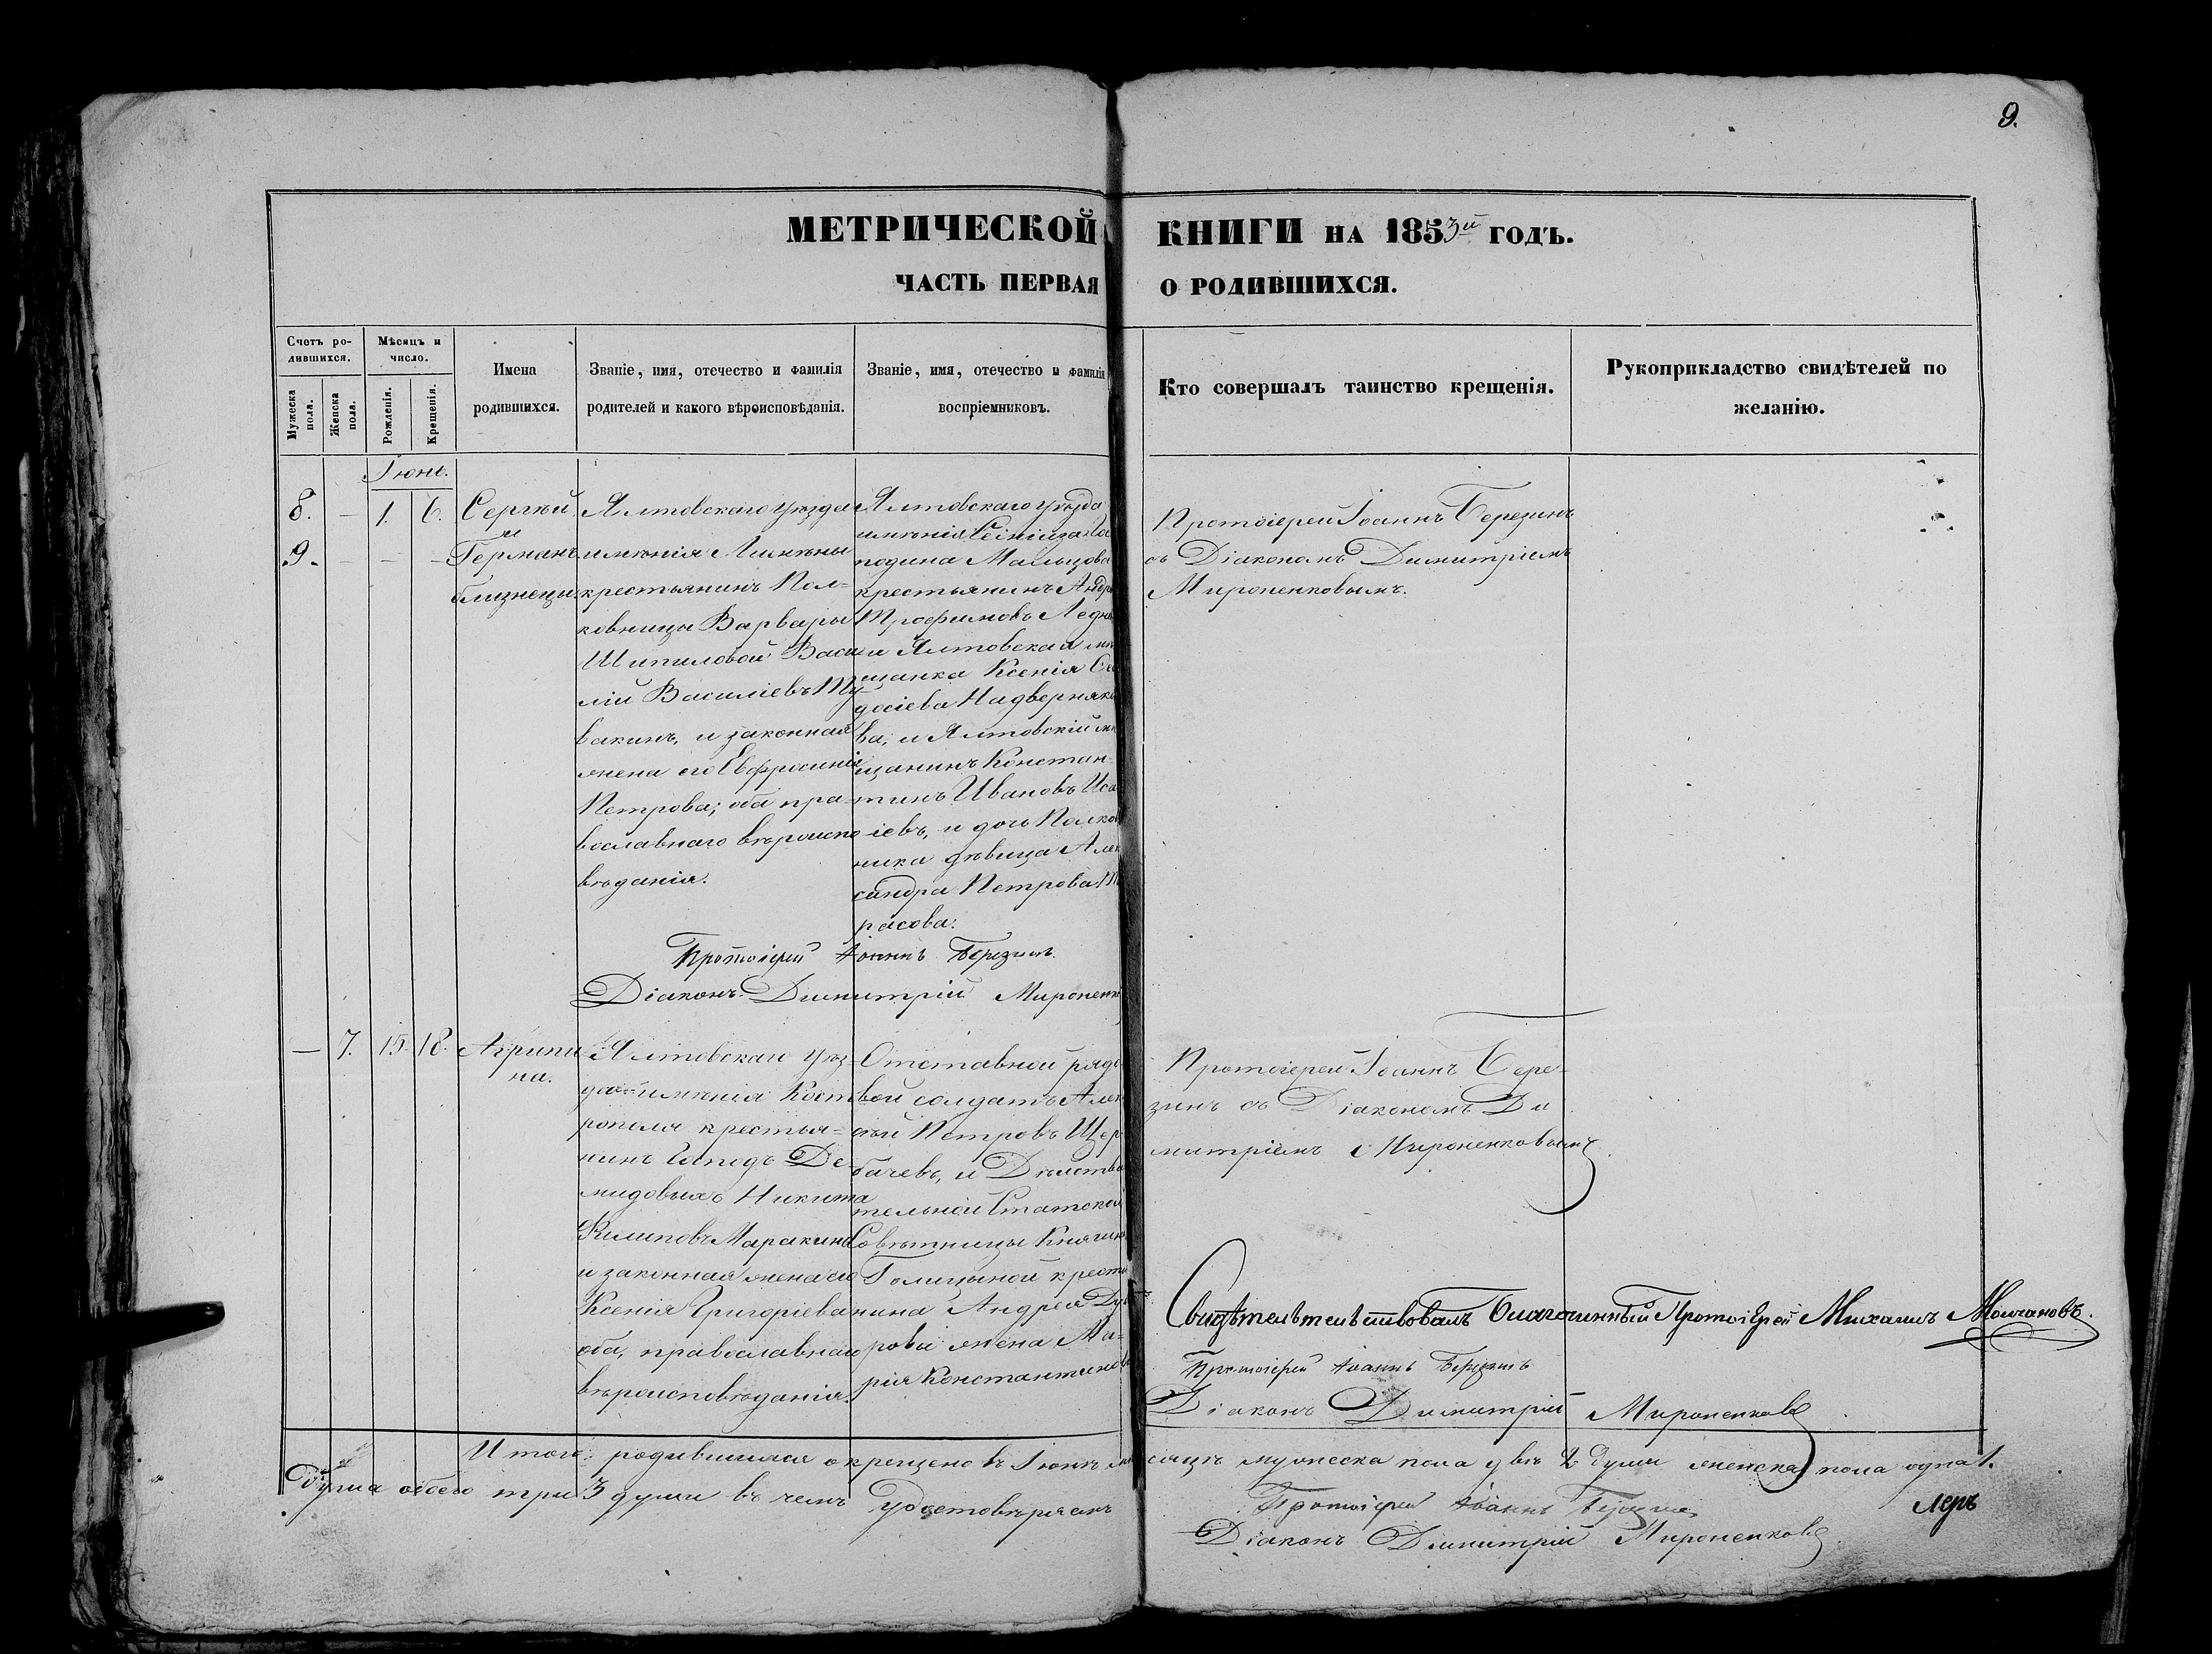 9.
МЕТРИЧЕСКОЙ КНИГИ НА 1853й ГОДЪ.
ЧАСТЬ ПЕРВАЯ О РОДИВШИХСЯ.
Счетъ ро-
дившихся.
Мужеска пола.
Женска пола.
Мѣсяцъ и
число.
Рожденія.
Крещенія.
Имена
родившихся.
Званіе, имя, отечество и фамилія
родителей и какого вѣроисповѣданія.
Званіе, имя, отечество и фамилія
воспріемниковъ.
Кто совершалъ таинство крещенія.
Рукоприкладство свидѣтелей по
желанію.
Іюнь.
8. — 1. 6. Сергѣй
и
9. — — — Германъ
близнецы
Ялтовскаго уѣзда
имѣнія Лимены
крестьянинъ Пол-
ковницы Варвары
Шипиловой Васи
лій Василіевъ Ту
вакинъ, и законная
жена его Евфросинія
Петрова; оба пра-
вославнаго вѣроиспо
вѣданія.
Ялтовскаго уѣзда
имѣнія
подина Мальцова
крестьянинъ
Трофимовъ
и Ялтовская мѣ
щанка Ксенія
досіева Надверняко
ва, и Ялтовскій мѣ
щанинъ Констан-
тинъ Ивановъ Иса
іевъ, и дочь Полков
ника дѣвица Алек
сандра Петрова
расова.
Протоіерей Іоаннъ Березинъ
съ Діакономъ Димитріемъ
Мироненковымъ.
Протоіерей Іоаннъ Березинъ.
Діаконъ Димитрій Мироненко
— 7. 15. 18. Агрипи
на.
Ялтовскаго уѣз-
да имѣнія Каст
рополя крестья-
нинъ Господъ Де-
мидовыхъ Никита
Филиповъ Маракинъ
и законная жена его
Ксенія Григоріева
оба, православнаго
вѣроисповѣданія.
Отставной рядо
вой солдатъ Алек
сѣй Петровъ Щер
бачевъ, и Дѣйстви
тельной Статской
Совѣтницы Княгини
Голицыной кресть
янина Андрея
рова жена Ма-
рія Константинова
Протоіерей Іоаннъ Бере-
зинъ съ Діакономъ Ди
митріемъ Мироненковымъ
Свидѣтельтельствовалъ Благочинный Протоіерей Михаилъ Молчановъ.
Протоіерей Іоаннъ Березинъ
Діаконъ Димитрій Мироненковъ
Итого: родившихся окрещено въ Іюнѣ мѣсяцѣ мужеска пола двѣ 2 души женска пола одна 1.
душа обоего три 3 души въ чемъ удостовѣряемъ
Протоіерей Іоаннъ Березинъ
Діаконъ Димитрій Мироненковъ